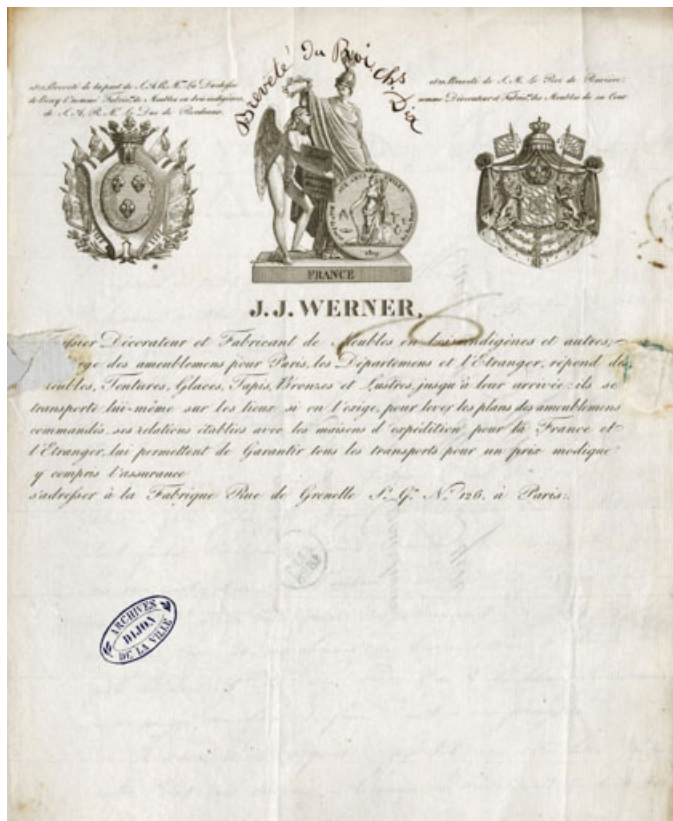 Breveté du Roi, Chs. Dix
et en Brevet de la part de S.A.R. Me. La Duchesse
de Berry & nommé Fabrict. de Meubles en bois indigènes
de S.A.R. Mgr. le Duc de Bordeaux.
et en Brevet de S.M. Le Roi de Bavière:
nommé Décorateur et Fabrict. des Meubles de sa Cour
1819
FRANCE
J. J. WERNER,
Décorateur et Fabricant de Meubles en bois indigènes et autres,
des ameublemens pour Paris, les Départemens et l'Etranger, répond des
meubles, Tentures, Glaces, Tapis, Bronzes et Lustres, jusqu'à leur arrivée: ils se
transporte lui-même sur les lieux si on l'exige, pour lever les plans des ameublemens
commandés. ses relations établies avec les maisons d'expédition pour la France et
l'Etranger, lui permettent de Garantir tous les transports pour un prix modique
y compris l'assurance
s'adresser à la Fabrique Rue de Grenelle St. Gn. No. 126. à Paris.
ARCHIVES
DIJON
DE LA VILLE